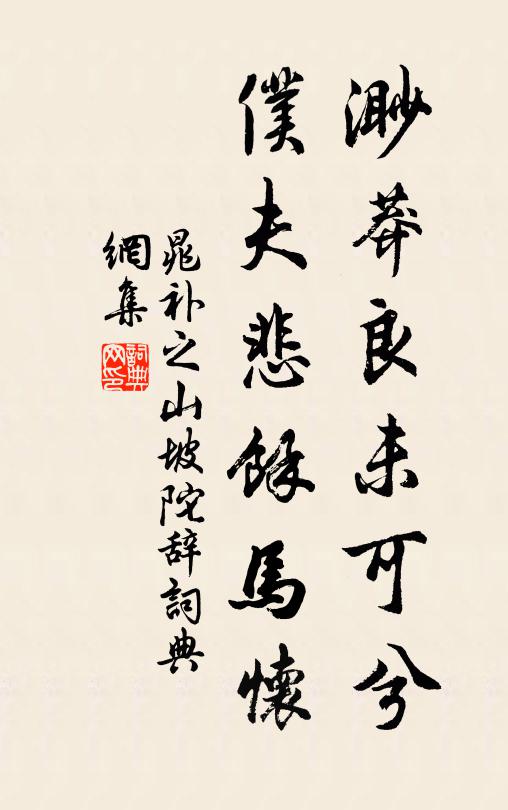 渺莽良未可兮
僕夫悲餘馬懷
晁补之山坡陀辞詞典
網集
詞典
网印